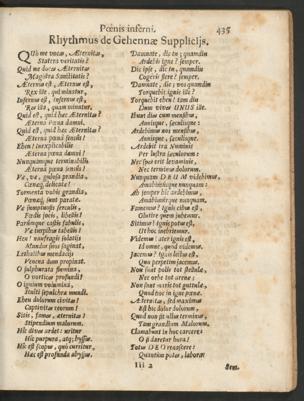 Pœnis inferni. 435
Rhythmus de Gehennæ Supplicijs.
QUid me vocas, Æternitas,
Statera veritatis?
Quid me doces Æternitas
Magistra Sanctitatis?
Æternus est, Æternus est,
Rex ille, qui minatur,
Infernus est, infernus est,
Quid est, quid hæc Æternitas?
Æterna pœna damni.
Quid est, quid hæc Æternitas?
Æterna pœna sensus!
Eheu! Inexplicabilis
Æterna pœna damni!
Nunquamque terminabilis
Æterna pœna sensus!
Væ, væ, gulosa prandia,
Cænæque delicatæ!
Tormenta vobis grandia,
Pœnæque sunt paratæ.
Væ sumptuosis ferculis,
Fædis jocis, libellis!
Parúmque castis fabulis,
Væ turpibus tabellis!
Heu! naufragis solatijs
Mundus suos saginat,
Lethalibus mendacijs
Venena dum propinat.
O sulphurata fumina,
O vortices profundi!
O ignium volumina,
Stulti sepulchra mundi.
Eheu dolorum civitas!
Captivitas reorum!
Sitis, fames, æternitas!
Stipendium malorum.
Hic dives ardet: uritur
Hic purpura, atque byssus.
Hic est scopus, quò curritur,
Hæc est profunda abyssus.
Damnate, dic tu; quamdiu
Ardebis igne? semper.
Dic ipse, dic tu, quamdiu
Cogeris flere? semper.
Damnate, dic; vos quamdiu
Torquebit ignis ille?
Torquebit eheu! tam diu
Dum vivet UNUS ille.
Annique, sæculisque:
Ardebimus nos mensibus,
Annisque, sæculisque.
Ardebit ira Numinis
Per lustra sæculorum:
Nec finis erit levaminis,
Nec terminus dolorum.
Nunquam DEUM videbimus,
Amabimúsque nunquam:
Ah semper hîc ardebimus,
Amabimúsque nunquam.
Fumemus? ignis cibus est,
Sitimus? ignis potus est,
Videmus? ater ignis est,
Jacemus? ignis lectus est,
Non sunt poli tot stellulæ,
Nec orbe tot arenæ:
Non sunt maris tot guttulæ,
Quod hoc in igne pœnæ.
Æternitas, sed maximus
Est hic dolor dolorum,
Quod non sit ullus terminus
Tam grandium Malorum.
Clamabunt in hoc carcere:
O si daretur hora!
Totus DEO
Quantum potes, labora:
Iii 2 Sem-